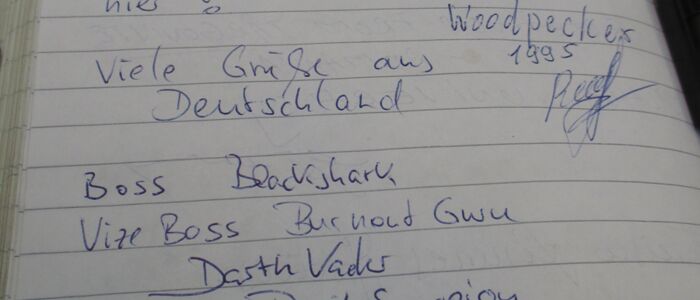 hier
Woodpecker
1995
Viele Grüße aus
Deutschland
Boss Blackshark
Vize Boss Burnout Gwu
Darth Vader